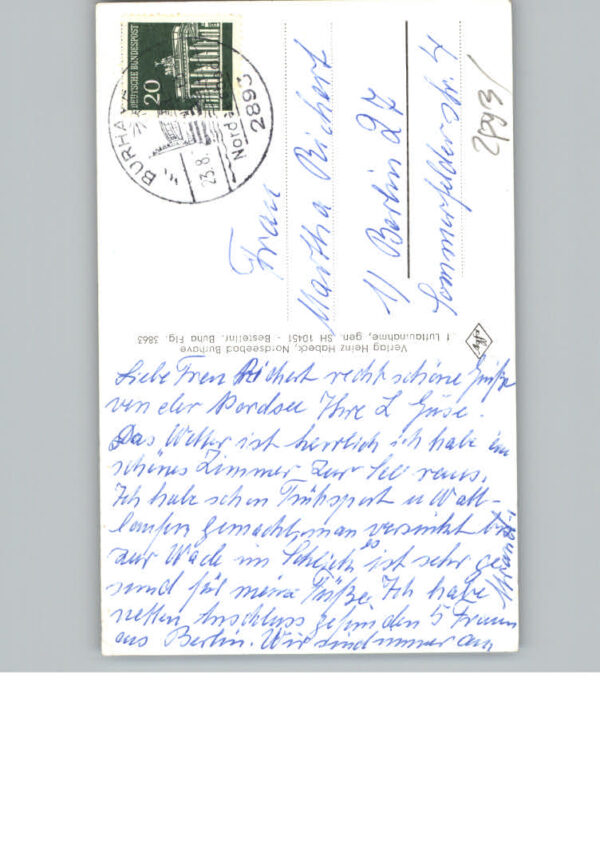 DEUTSCHE BUNDESPOST
20
BURHAVE
23.8.
2893
Frau
Martha Richert
1) Berlin 27
Sommerfelderstr. 4
2893/
Verlag Heinz Habeck, Nordseebad Burhave
f. Luftaufnahme, gen. SH 10451 - Bestellnr. Buha Flg. 3863
Liebe Frau Richert recht schöne Grüße
von der Nordsee Ihre L Güse.
Das Wetter ist herrlich ich habe ein
schönes Zimmer zur See raus.
Ich habe schon Frühsport u Watt-
laufen gemacht, man versinkt bis
zur Wade im Schlick es ist sehr ge
sund für meine Füße. Ich habe
netten Anschluss gefunden 5 Frauen
aus Berlin. Wir sind immer am
Strand.